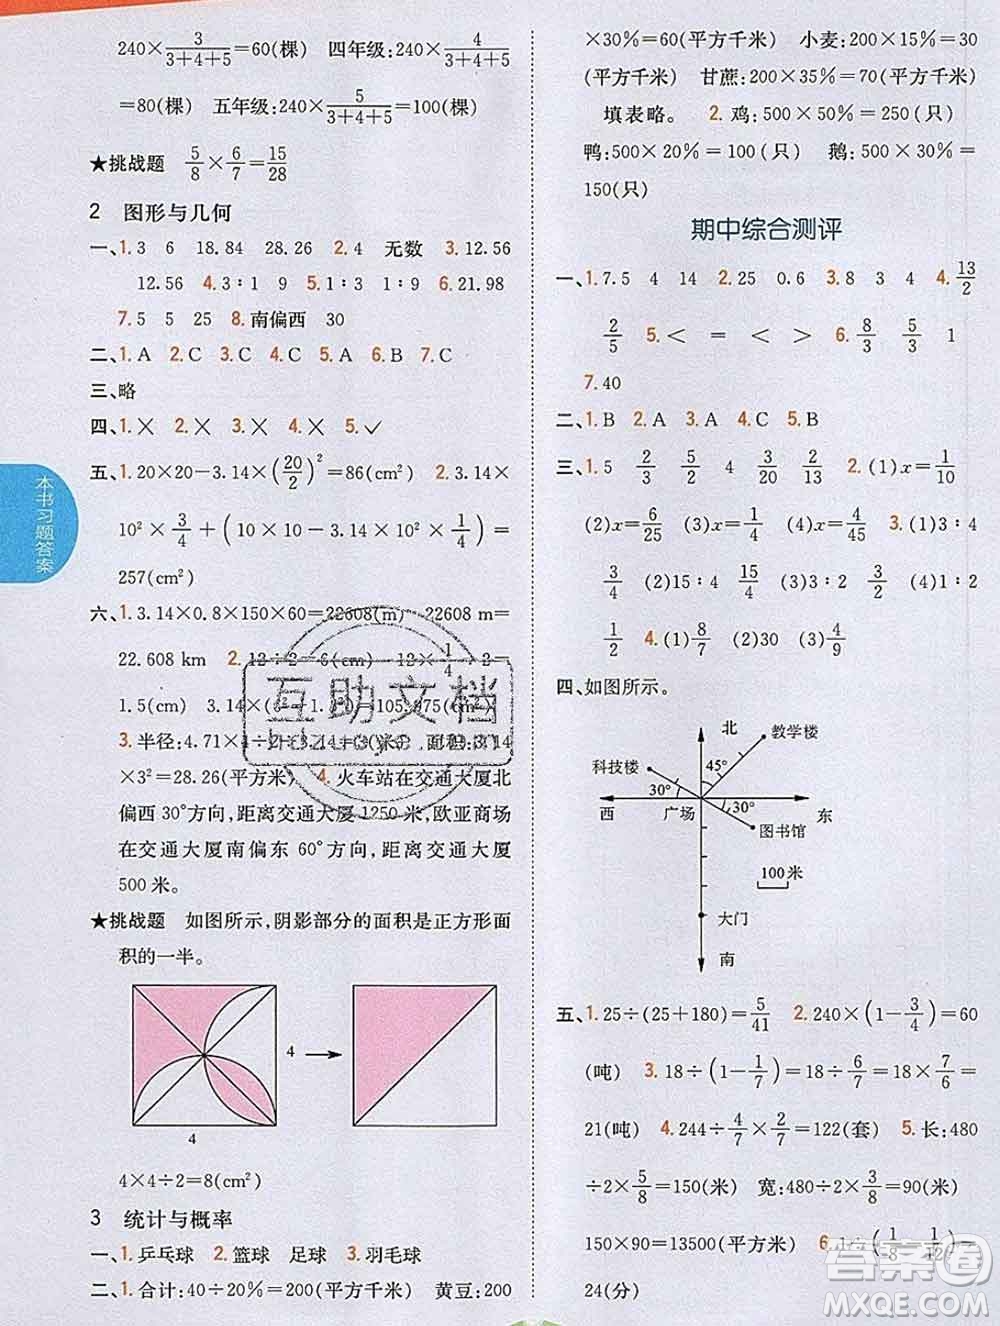 240×3/(3+4+5)=60(棵) 四年级:240×4/(3+4+5)
=80(棵) 五年级:240×5/(3+4+5)=100(棵)
★挑战题 5/8×6/7=15/28
2 图形与几何
一、1.3 6 18.84 28.26 2.4 无数 3.12.56
12.56 4.3∶1 9 5.1∶3 1∶9 6.21.98
7.5 5 25 8.南偏西 30
二、1.A 2.C 3.C 4.C 5.A 6.B 7.C
三、略
四、1.× 2.× 3.× 4.× 5.✓
五、1.20×20-3.14×(20/2)²=86(cm²) 2.3.14×
10²×3/4+(10×10-3.14×10²×1/4)=
257(cm²)
六、1.3.14×0.8×150×60=22608(m) 22608 m=
22.608 km 2.12÷2=6(cm) 12×1/4÷2=
1.5(cm) 3.14×(6²-1.5²)=105.975(cm²)
3.半径:4.71×4÷2÷3.14=3(米) 面积:3.14
×3²=28.26(平方米) 4.火车站在交通大厦北
偏西30°方向,距离交通大厦1250米,欧亚商场
在交通大厦南偏东60°方向,距离交通大厦
500米。
★挑战题 如图所示,阴影部分的面积是正方形面
积的一半。
4
4
4×4÷2=8(cm²)
3 统计与概率
一、1.乒乓球 2.篮球 足球 3.羽毛球
二、1.合计:40÷20%=200(平方千米) 黄豆:200
×30%=60(平方千米) 小麦:200×15%=30
(平方千米) 甘蔗:200×35%=70(平方千米)
填表略。 2.鸡:500×50%=250(只)
鸭:500×20%=100(只) 鹅:500×30%=
150(只)
期中综合测评
一、1.7.5 4 14 2.25 0.6 3.8 4 4.13/2
2/5 5.< = < > 6.8/3 3/5 1
7.40
二、1.B 2.A 3.A 4.C 5.B
三、1.5 2/3 2/5 3/20 2/13 2.(1)x=1/10
(2)x=6/25 (3)x=1/4 (4)x=4/45 3.(1)3∶4
3/4 (2)15∶4 15/4 (3)3∶2 3/2 (4)1∶2
1/2 4.(1)8/7 (2)30 (3)4/9
四、如图所示。
北
教学楼
科技楼
45°
30°
30°
西
广场
东
图书馆
100米
大门
南
五、1.25÷(25+180)=5/41 2.240×(1-3/4)=60
(吨) 3.18÷(1-1/7)=18÷6/7=18×7/6=
21(吨) 4.244÷4/7×2/7=122(套) 5.长:480
÷2×5/8=150(米) 宽:480÷2×3/8=90(米)
150×90=13500(平方米)
24(分)
本书习题答案
互助文档
答案圈
MXQE.COM